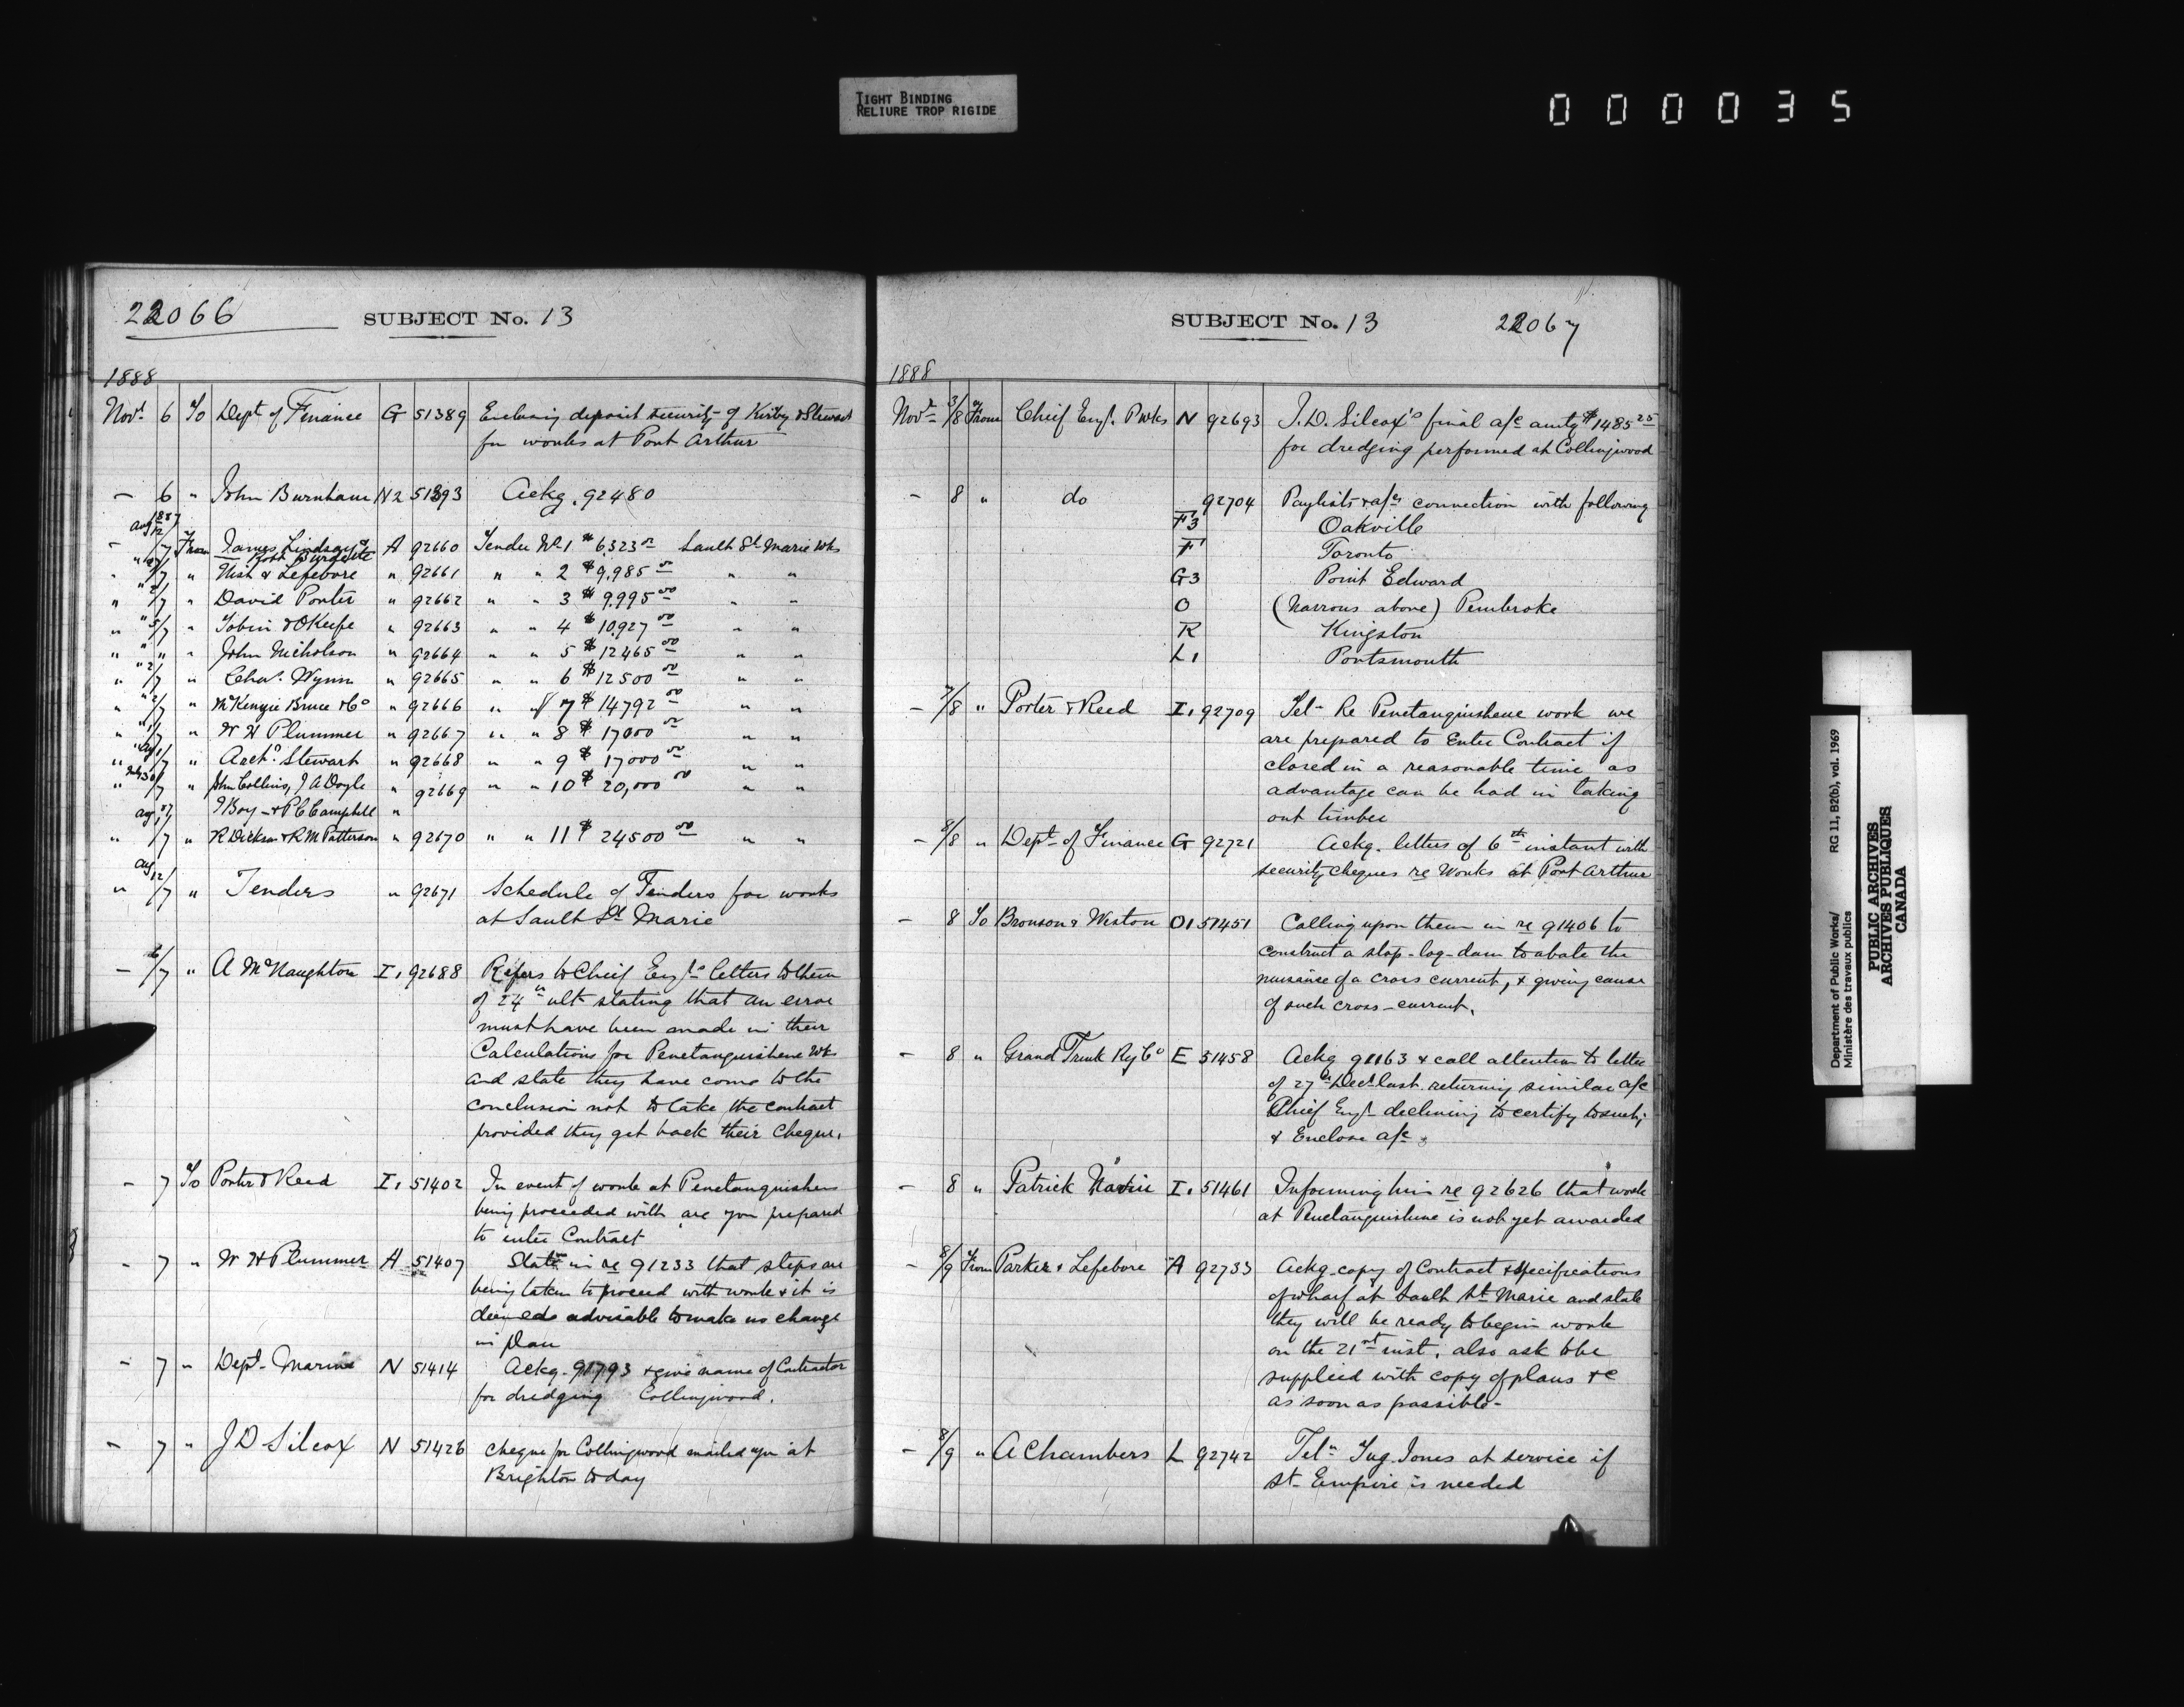 TIGHT BINDING
RELIURE TROP RIGIDE
000035
22066 SUBJECT No. 13
1888
Novr 6 To Dept of Finance G 51389 Enclosing deposit security of Kirby & Stewart
for works at Port Arthur
— 6 " John Burnham N2 51393 Ackg. 92480
Aug 1887
— 12/7 From James Lindsay & A 92660 Tender No 1 $6,323.00 Sault St Marie Wks
Robt
" 7 " & Lefebvre " 92661 " " 2 $9,985.00 " "
" 2/7 " David Porter " 92662 " " 3 $9,995.00 " "
" 5/7 " Tobin & O'Keefe " 92663 " " 4 $10,927.00 " "
" " " John Nicholson " 92664 " " 5 $12465.00 " "
" 2/7 " Chas. Wynn " 92665 " " 6 $12500.00 " "
" 2/7 " McKenzie Bruce & Co " 92666 " " 7 $14792.00 " "
" 1/7 " W H Plummer " 92667 " " 8 $17000.00 " "
" 1/7 " Archd. Stewart " 92668 " " 9 $17000.00 " "
" 7 " John Collins, J A Doyle " 92669 " " 10 $20,000.00 " "
& P C Campbell "
" 7 " R Dickson & R M Patterson " 92670 " " 11 $24500.00 " "
Aug
" 12/7 " Tenders " 92671 Schedule of Tenders for works
at Sault St Marie
— 6/7 " A McNaughton I1 92688 Refers to Chief Engr's letters to them
of 24th ult stating that an error
must have been made in their
Calculations for Penetanguishene Wks
and state they have come to the
conclusion not to take the contract
provided they get back their cheque.
— 7 To Porter & Reed I1 51402 In event of work at Penetanguishene
being proceeded with are you prepared
to enter Contract
— 7 " W H Plummer A 51407 State in re 91233 that steps are
being taken to proceed with work & it is
deemed advisable to make no change
in plan
— 7 " Dept. Marine N 51414 Ackg. 91793 & give name of Contractor
for dredging Collingwood.
— 7 " J D Silcox N 51426 cheque for Collingwood mailed you at
Brighton today
SUBJECT No. 13 22067
1888
Novr 3/8 From Chief Engr. P Wks N 92693 J. D. Silcox's final a/c amtg $1485.25
for dredging performed at Collingwood
— 8 " do 92704 Paylists & a/cs connection with following
F3 Oakville
F Toronto
G3 Point Edward
O (Narrows above) Pembroke
R Kingston
L1 Portsmouth
— 7/8 " Porter & Reed I1 92709 Tel— Re Penetanguishene work we
are prepared to Enter Contract if
closed in a reasonable time as
advantage can be had in taking
out timber
— 8/8 " Dept. of Finance G 92721 Ackg. letters of 6th instant with
security cheques re Works at Port Arthur
— 8 To Bronsons & Weston O1 51451 Calling upon them in re 91406 to
construct a stop-log-dam to abate the
nuisance of a cross current, & giving cause
of such cross-current.
— 8 " Grand Trunk Ry Co E 51458 Ackg 91163 & call attention to letter
of 27th Decr last. returning similar a/c
Chief Engr declining to certify to such;
& Enclose a/c.
— 8 " Patrick Navin I1 51461 Informing him re 92626 that work
at Penetanguishene is not yet awarded
— 8/9 From Parker & Lefebvre A 92733 Ackg copy of Contract & Specifications
of wharf at Sault St. Marie and state
they will be ready to begin work
on the 21st inst. also ask to be
supplied with copy of plans &c
as soon as possible—
— 8/9 " A Chambers L 92742 Teln Tug Jones at service if
St— Empire is needed
Department of Public Works/
Ministère des travaux publics
RG 11, B2(b), vol. 1969
PUBLIC ARCHIVES
ARCHIVES PUBLIQUES
CANADA